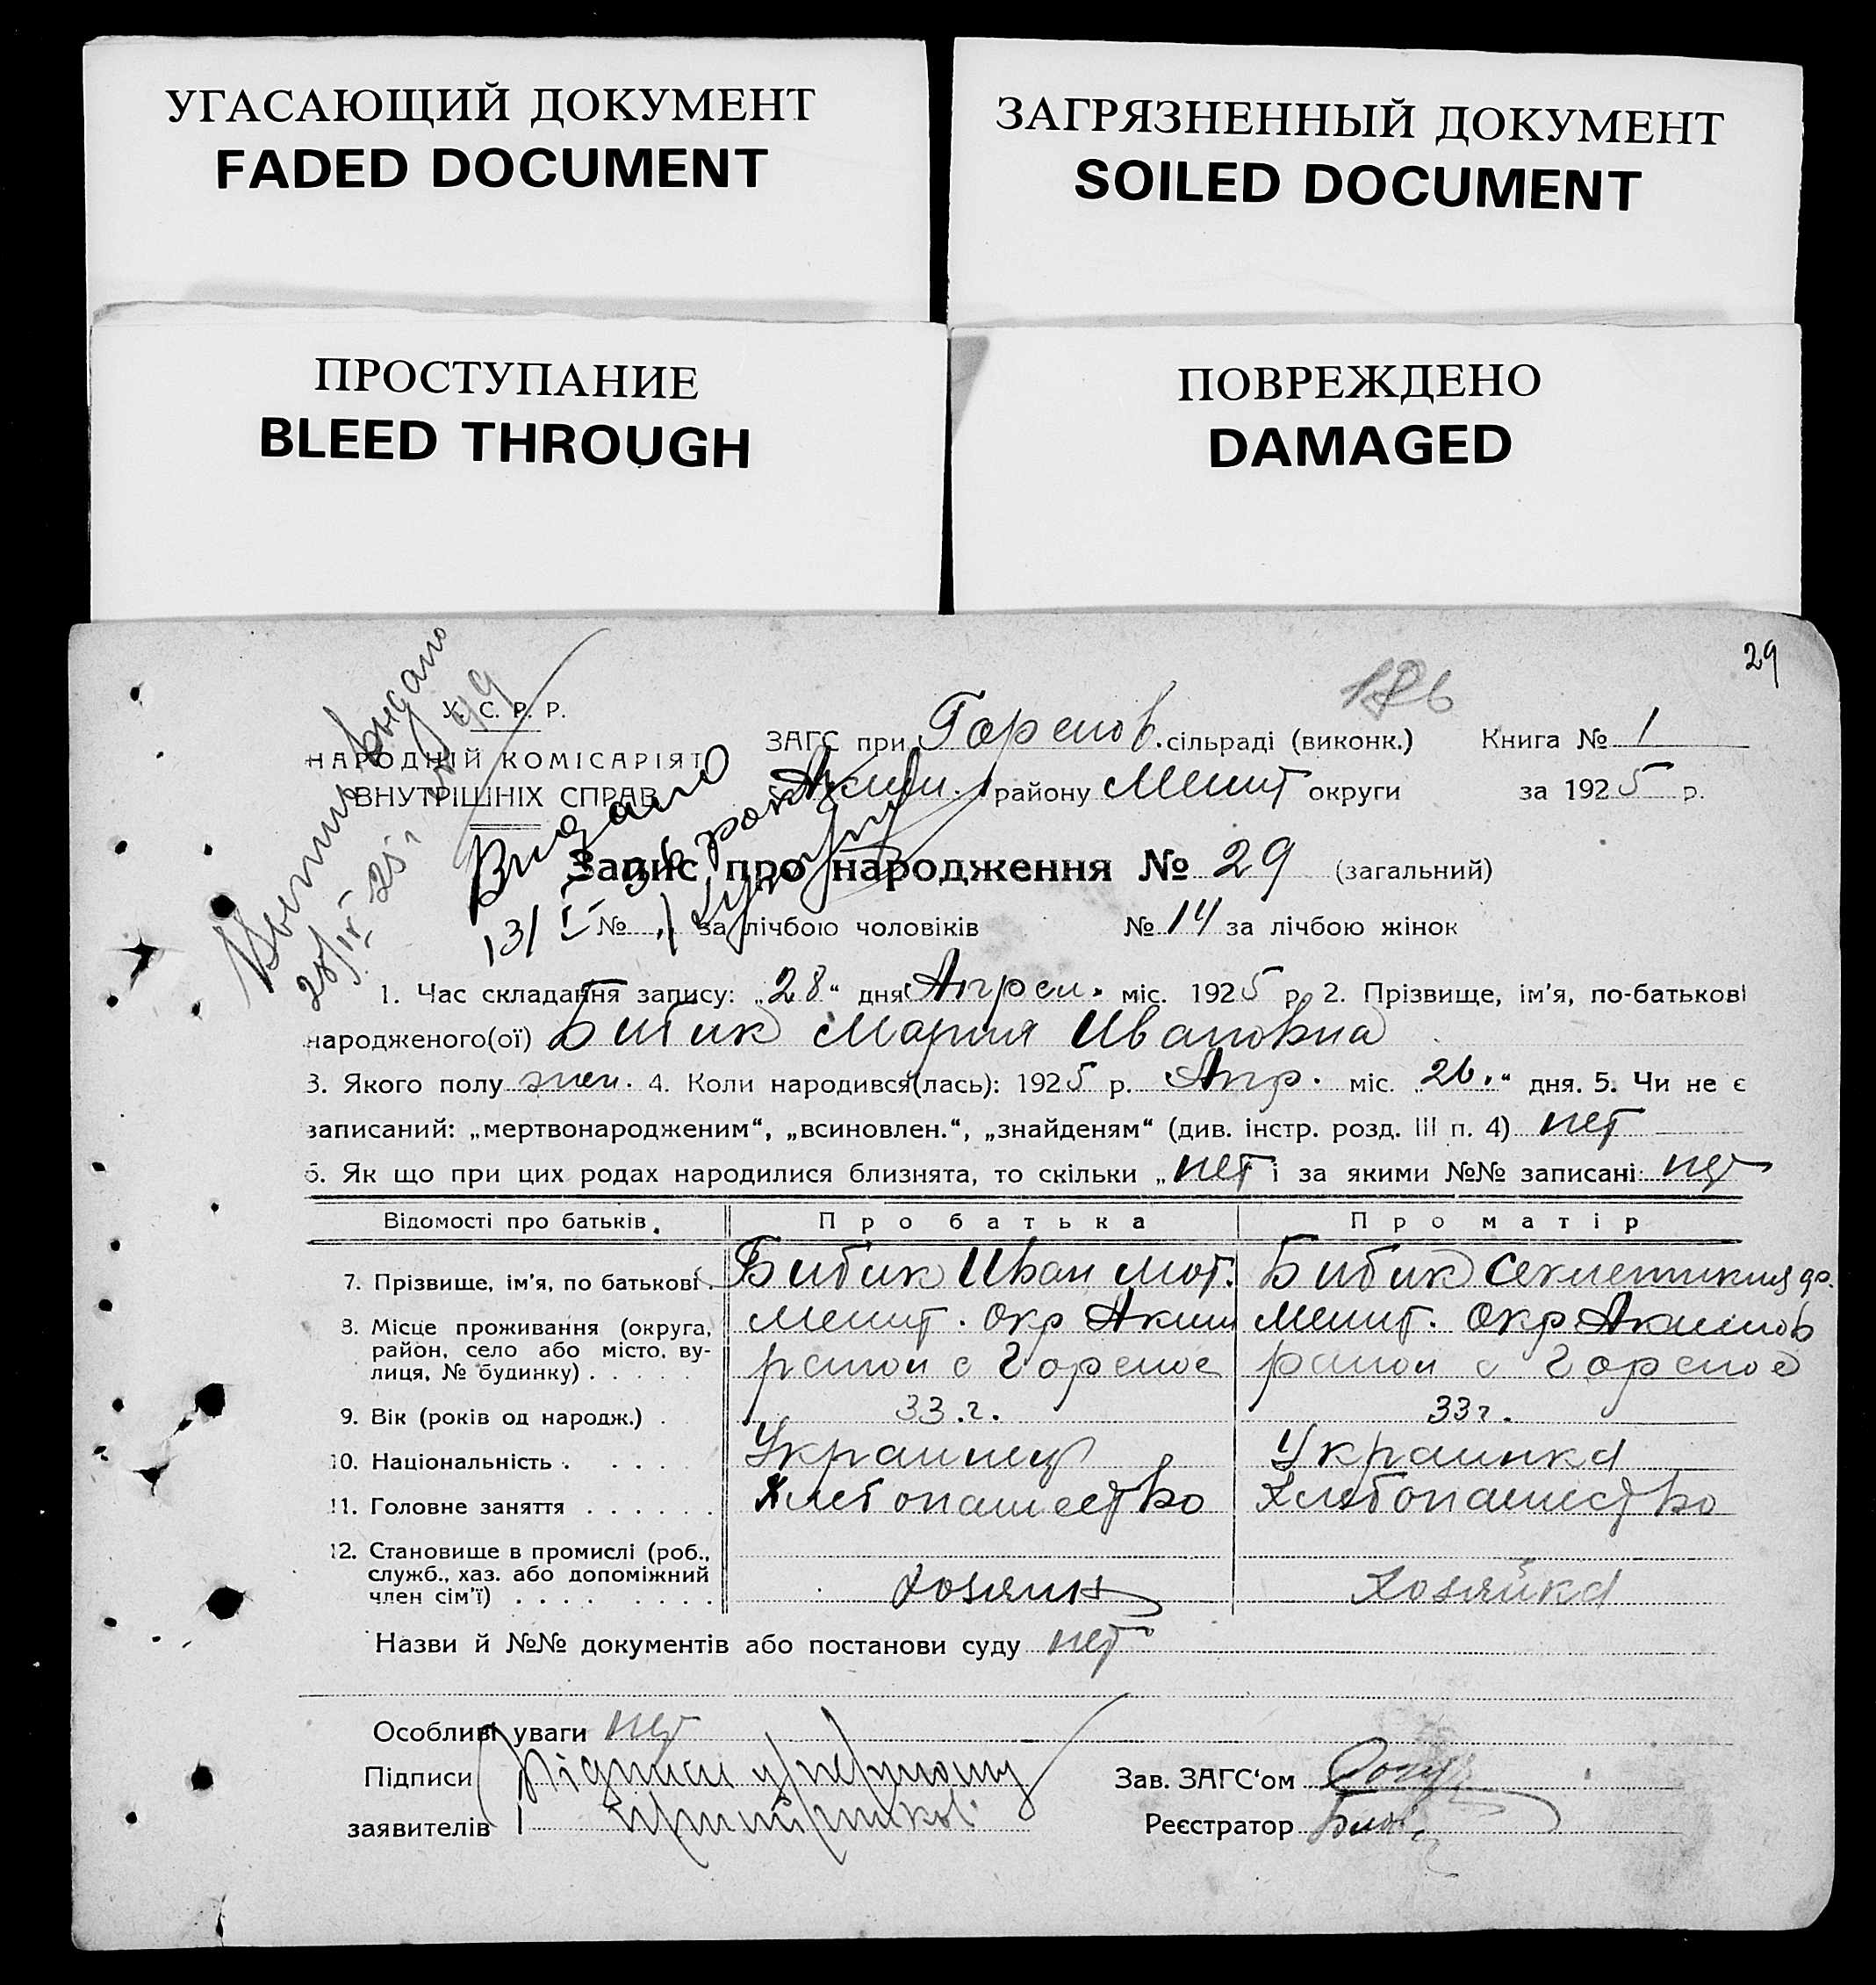 УГАСАЮЩИЙ ДОКУМЕНТ
FADED DOCUMENT
ЗАГРЯЗНЕННЫЙ ДОКУМЕНТ
SOILED DOCUMENT
ПРОСТУПАНИЕ
BLEED THROUGH
ПОВРЕЖДЕНО
DAMAGED
29
У. С. Р. Р.
НАРОДНІЙ КОМІСАРІЯТ
ВНУТРІШНІХ СПРАВ
выдано
28/IV-25 г.
Видано
ЗАГС при Горенов. сільраді (виконк.) Книга № 1
Аким. району Мелит округи за 1925 р.
Запис про народження № 29 (загальний)
№ за лічбою чоловіків № 14 за лічбою жінок
1. Час складання запису: „28“ дня Апрел. міс. 1925 р. 2. Прізвище, ім'я, по-батькові
народженого(ої) Бибик Мария Ивановна
3. Якого полу жен. 4. Коли народився(лась): 1925 р. Апр. міс. „26.“ дня. 5. Чи не є
записаний: „мертвонародженим“, „всиновлен.“, „знайденям“ (див. інстр. розд. III п. 4) нет
6. Як що при цих родах народилися близнята, то скільки „нет і за якими №№ записані: нет
Відомості про батьків. Про батька Про матір
7. Прізвище, ім'я, по батькові . Бибик Иван Мот. Бибик
8. Місце проживання (округа, район, село або місто, вулиця, № будинку) . . . . .
Мелит. Окр Аким Мелит. Окр Акимов
район с Горелое район с Горелое
9. Вік (років од народж.) . 33.г. 33 г.
10. Національність . . . . . Украинец Украинка
11. Головне заняття . . . . . . Хлебопашество Хлебопашество
12. Становище в промислі (роб.,
служб., хаз. або допоміжний
член сім'ї) . . . . . . . . хозяин хозяйка
Назви й №№ документів або постанови суду нет
Особливі уваги нет
Підписи Підписи у першому
заявителів примірникові
Зав. ЗАГС'ом
Реєстратор